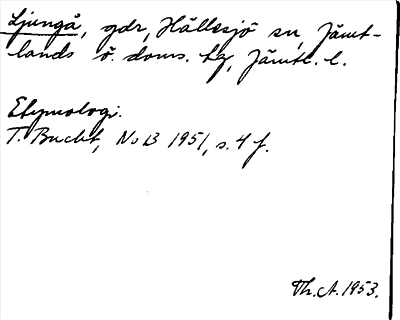 Ljungå, gdr, Hällesjö sn, Jämt-
lands ö. doms. hg, Jämtl. l.
Etymologi.
T. Bucht, NoB 1951, s. 4 f.
Th. A. 1953.